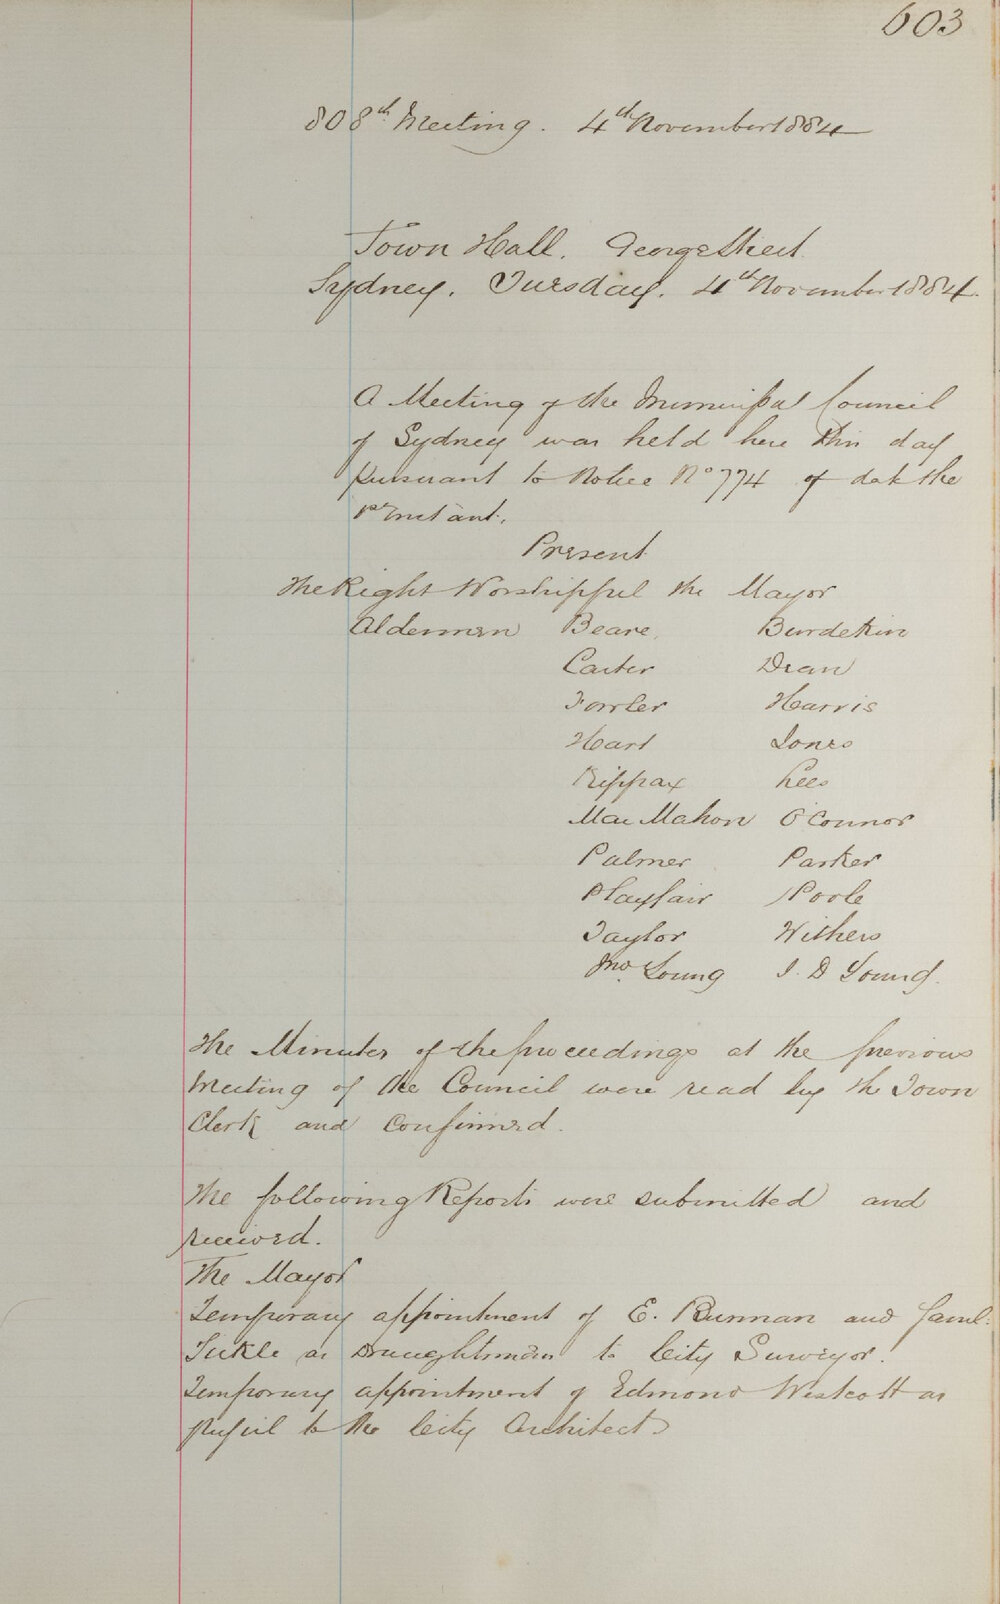 603
808th Meeting. 4th November 1884
Town Hall. George Street.
Sydney. Tuesday. 4th November 1884.
A Meeting of the Municipal Council
of Sydney was held here this day
pursuant to Notice No 774 of date the
1st Instant.
Present
The Right Worshipful the Mayor
Aldermen Beare. Burdekin
Carter Dean
Fowler Harris
Hart Jones
Kippax Lees
MacMahon O'Connor
Palmer Parker
Playfair Poole
Taylor Withers
Jno. Young J. D Young.
The Minutes of the proceedings at the previous
Meeting of the Council were read by the Town
Clerk and confirmed.
The following Reports were submitted and
received.
The Mayor
Temporary appointment of E. and Saml.
Tickle as Draughtsman to City Surveyor.
Temporary appointment of Edmond Westcott as
pupil to the City Architect